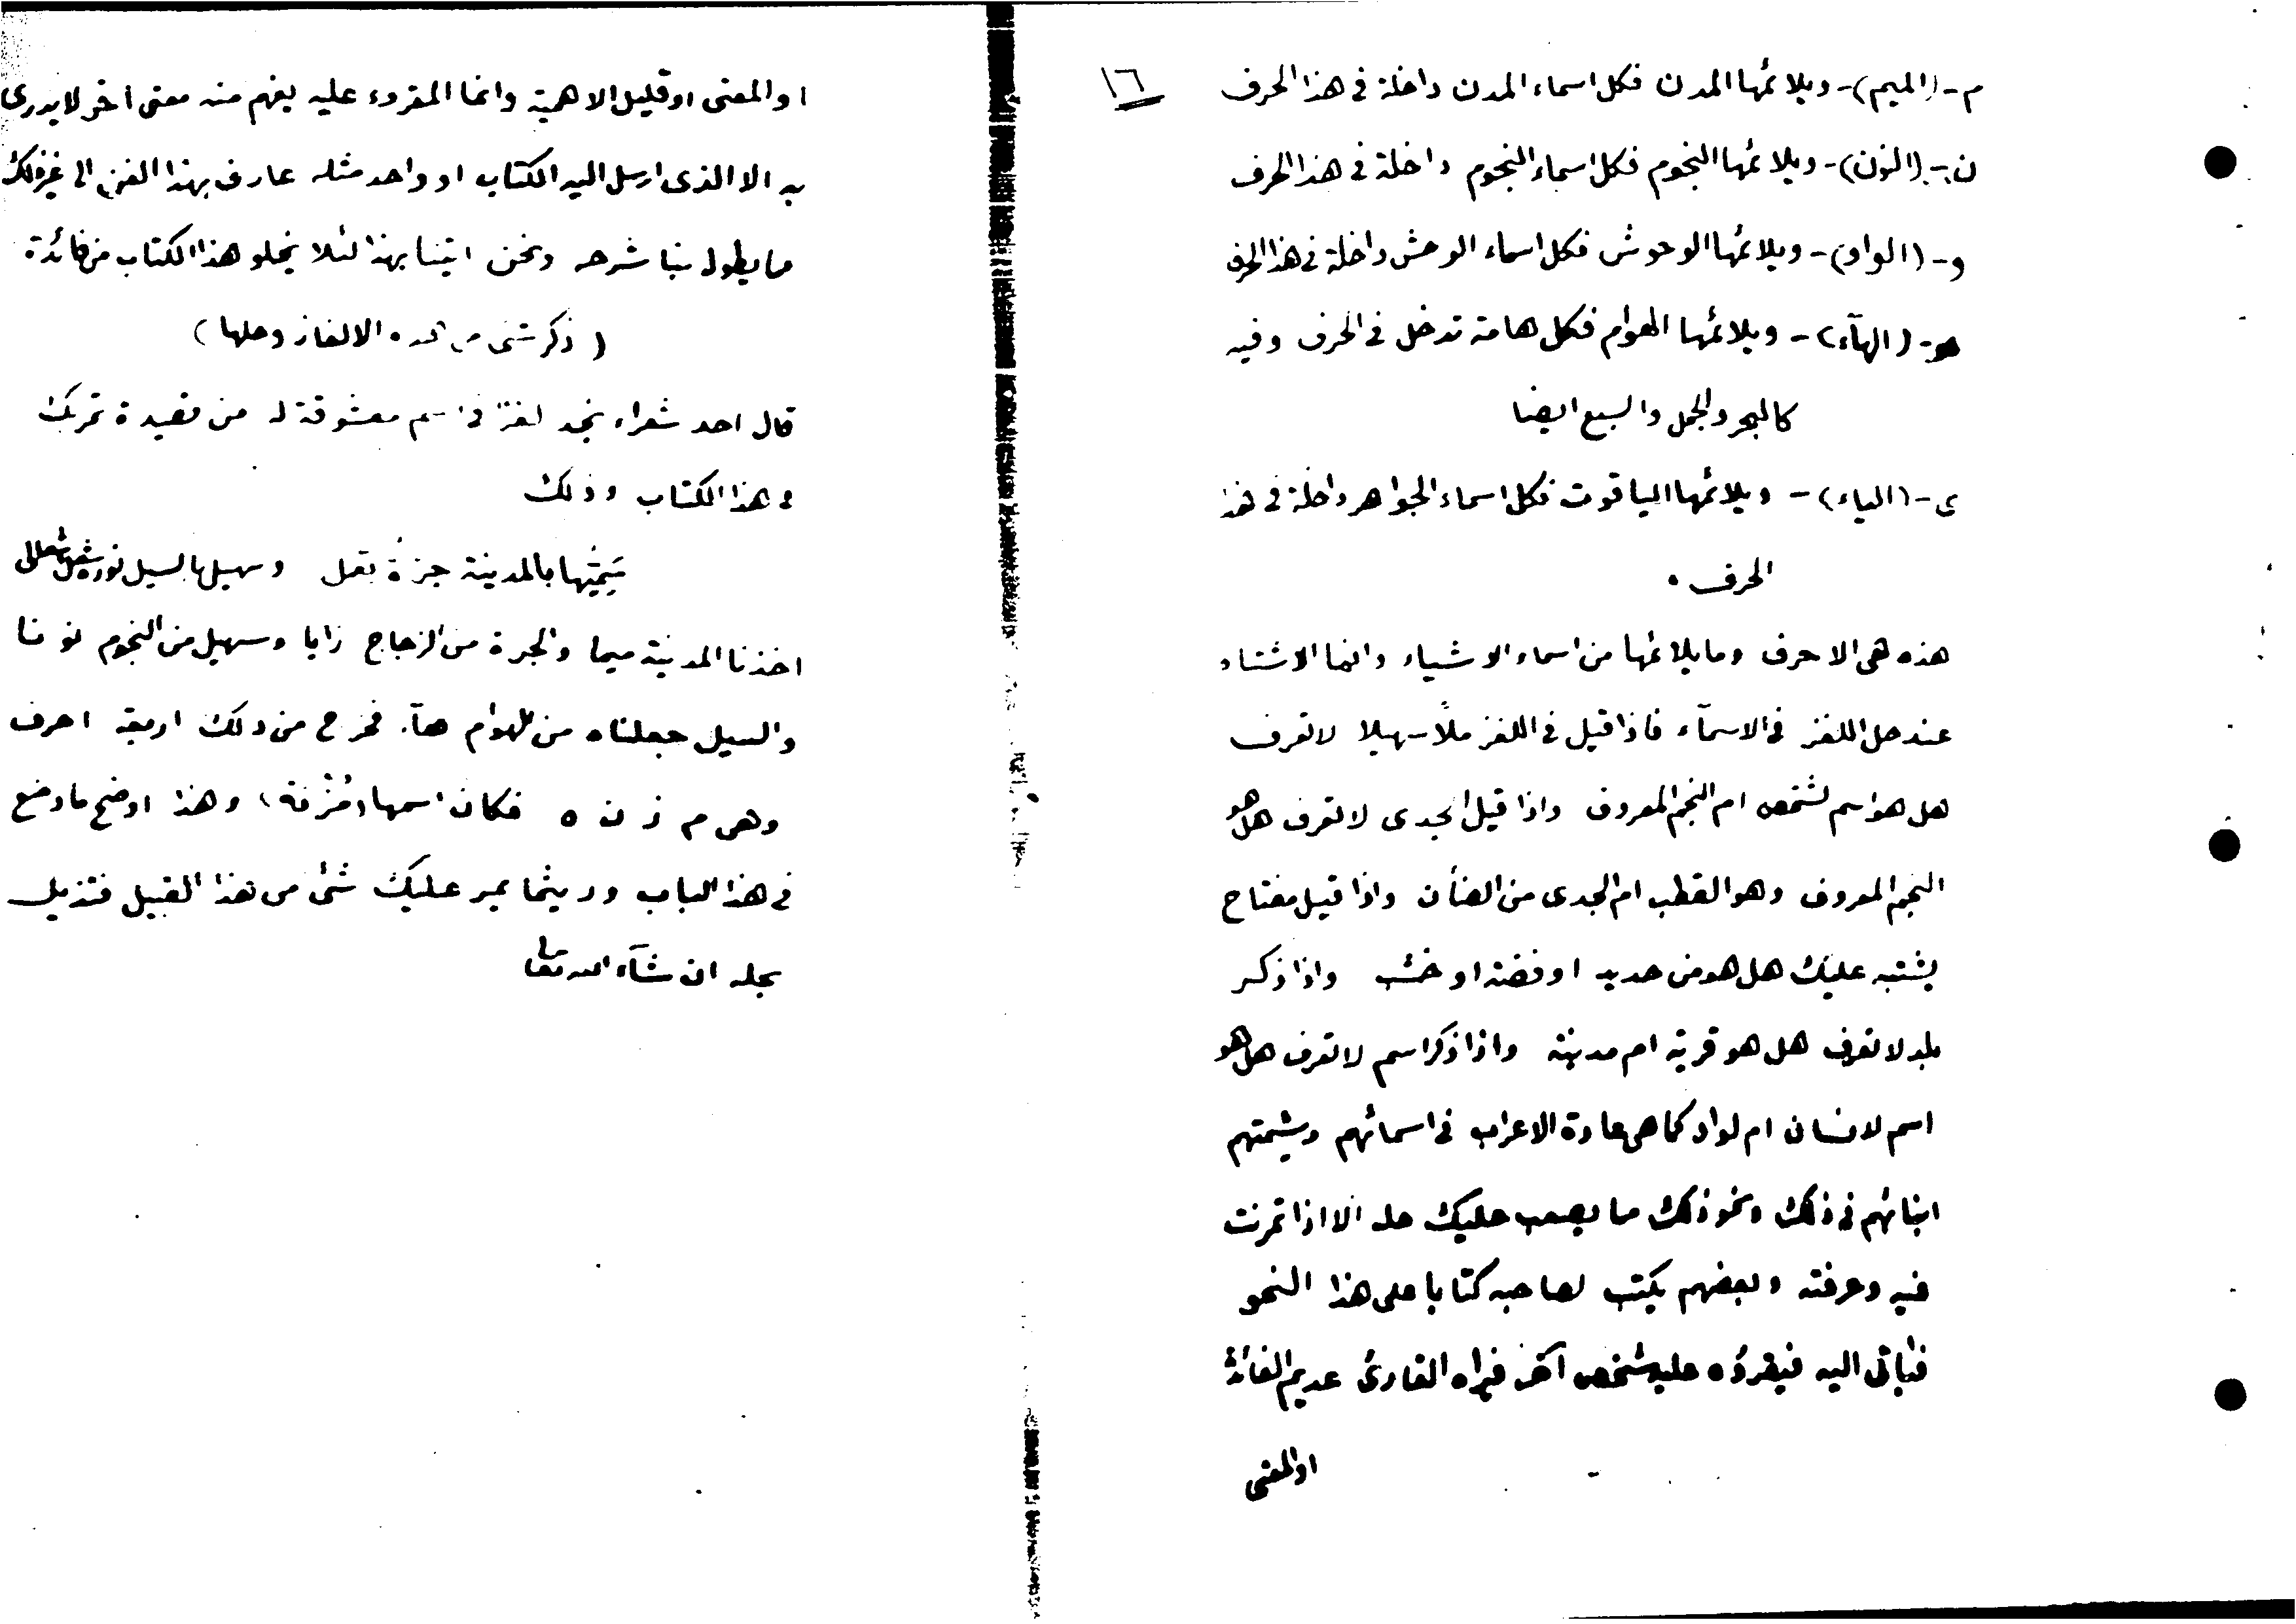 ١٦
م - (الميم) - ويلائمها المدن فكل اسماء المدن داخلة في هذا الحرف
ن - (النون) - ويلائمها النجوم فكل اسماء النجوم داخلة في هذا الحرف
و - (الواو) - ويلائمها الوحوش فكل اسماء الوحش داخلة في هذا الحرف
هـ - (الهآء) - ويلائمها الهوام فكل هامة تدخل في الحرف وفيه
كالبحر والجمل والسبع ايضا
ى - (الياء) - ويلائمها الياقوت فكل اسماء الجواهر داخلة في هذا
الحرف .
هذه هي الاحرف وما يلائمها من اسماء الاشياء وانما الاشتباه
عند حل اللغز في الاسمآء فاذا قيل في اللغز مثلاً سهيلا لا تعرف
هل هو اسم لشخص ام النجم المعروف واذا قيل الجدى لا تعرف هل هو
النجم المعروف وهو القطب ام الجدى من الضأن واذا قيل مفتاح
يشتبه عليك هل هو من حديد او فضة او خشب واذا ذكر
بلد لا تعرف هل هو قرية ام مدينة واذا ذكر اسم لا تعرف هل هو
اسم لانسان ام لواد كما هي عادة الاعراب في اسمائهم وشيمتهم
ابنائهم في ذلك ونحو ذلك مما يصعب عليك حله الا اذا تمرنت
فيه وعرفته وبعضهم يكتب لصاحبه كتابا على هذا النحو
فيأتى اليه فيقرؤه عليه شخص آخر فيراه القارئ عديم الفائدة
او المعنى
او المعنى او قليل الاهمية وانما المقروء عليه يفهم منه معنى اخر لا يدرى
به الا الذى ارسل اليه الكتاب او واحد مثله عارف بهذا الفن الى غير ذلك
مما يطول بنا شرحه ونحن اتينا بهذا لئلا يخلو هذا الكتاب من فائدة
(ذكر شئ من هذه الالغاز وحلها)
قال احد شعراء نجد لغزا في اسم معشوقة له من قصيدة تمر بك
في هذا الكتاب وذلك
بالمدينة جزة وسهيل بالسيل نوره
اخذنا المدينة ميما والجرة من الزجاج زايا وسهيل من النجوم نونا
والسيل جعلناه من الهوام هآء فخرج من ذلك اربعة احرف
وهى م ز ن ه فكان اسمها (مُزْنة) وهذا اوضح ما وضع
في هذا الباب وريثما يمر عليك شئ من هذا القبيل فنذيله
بحله ان شآء الله تعالى